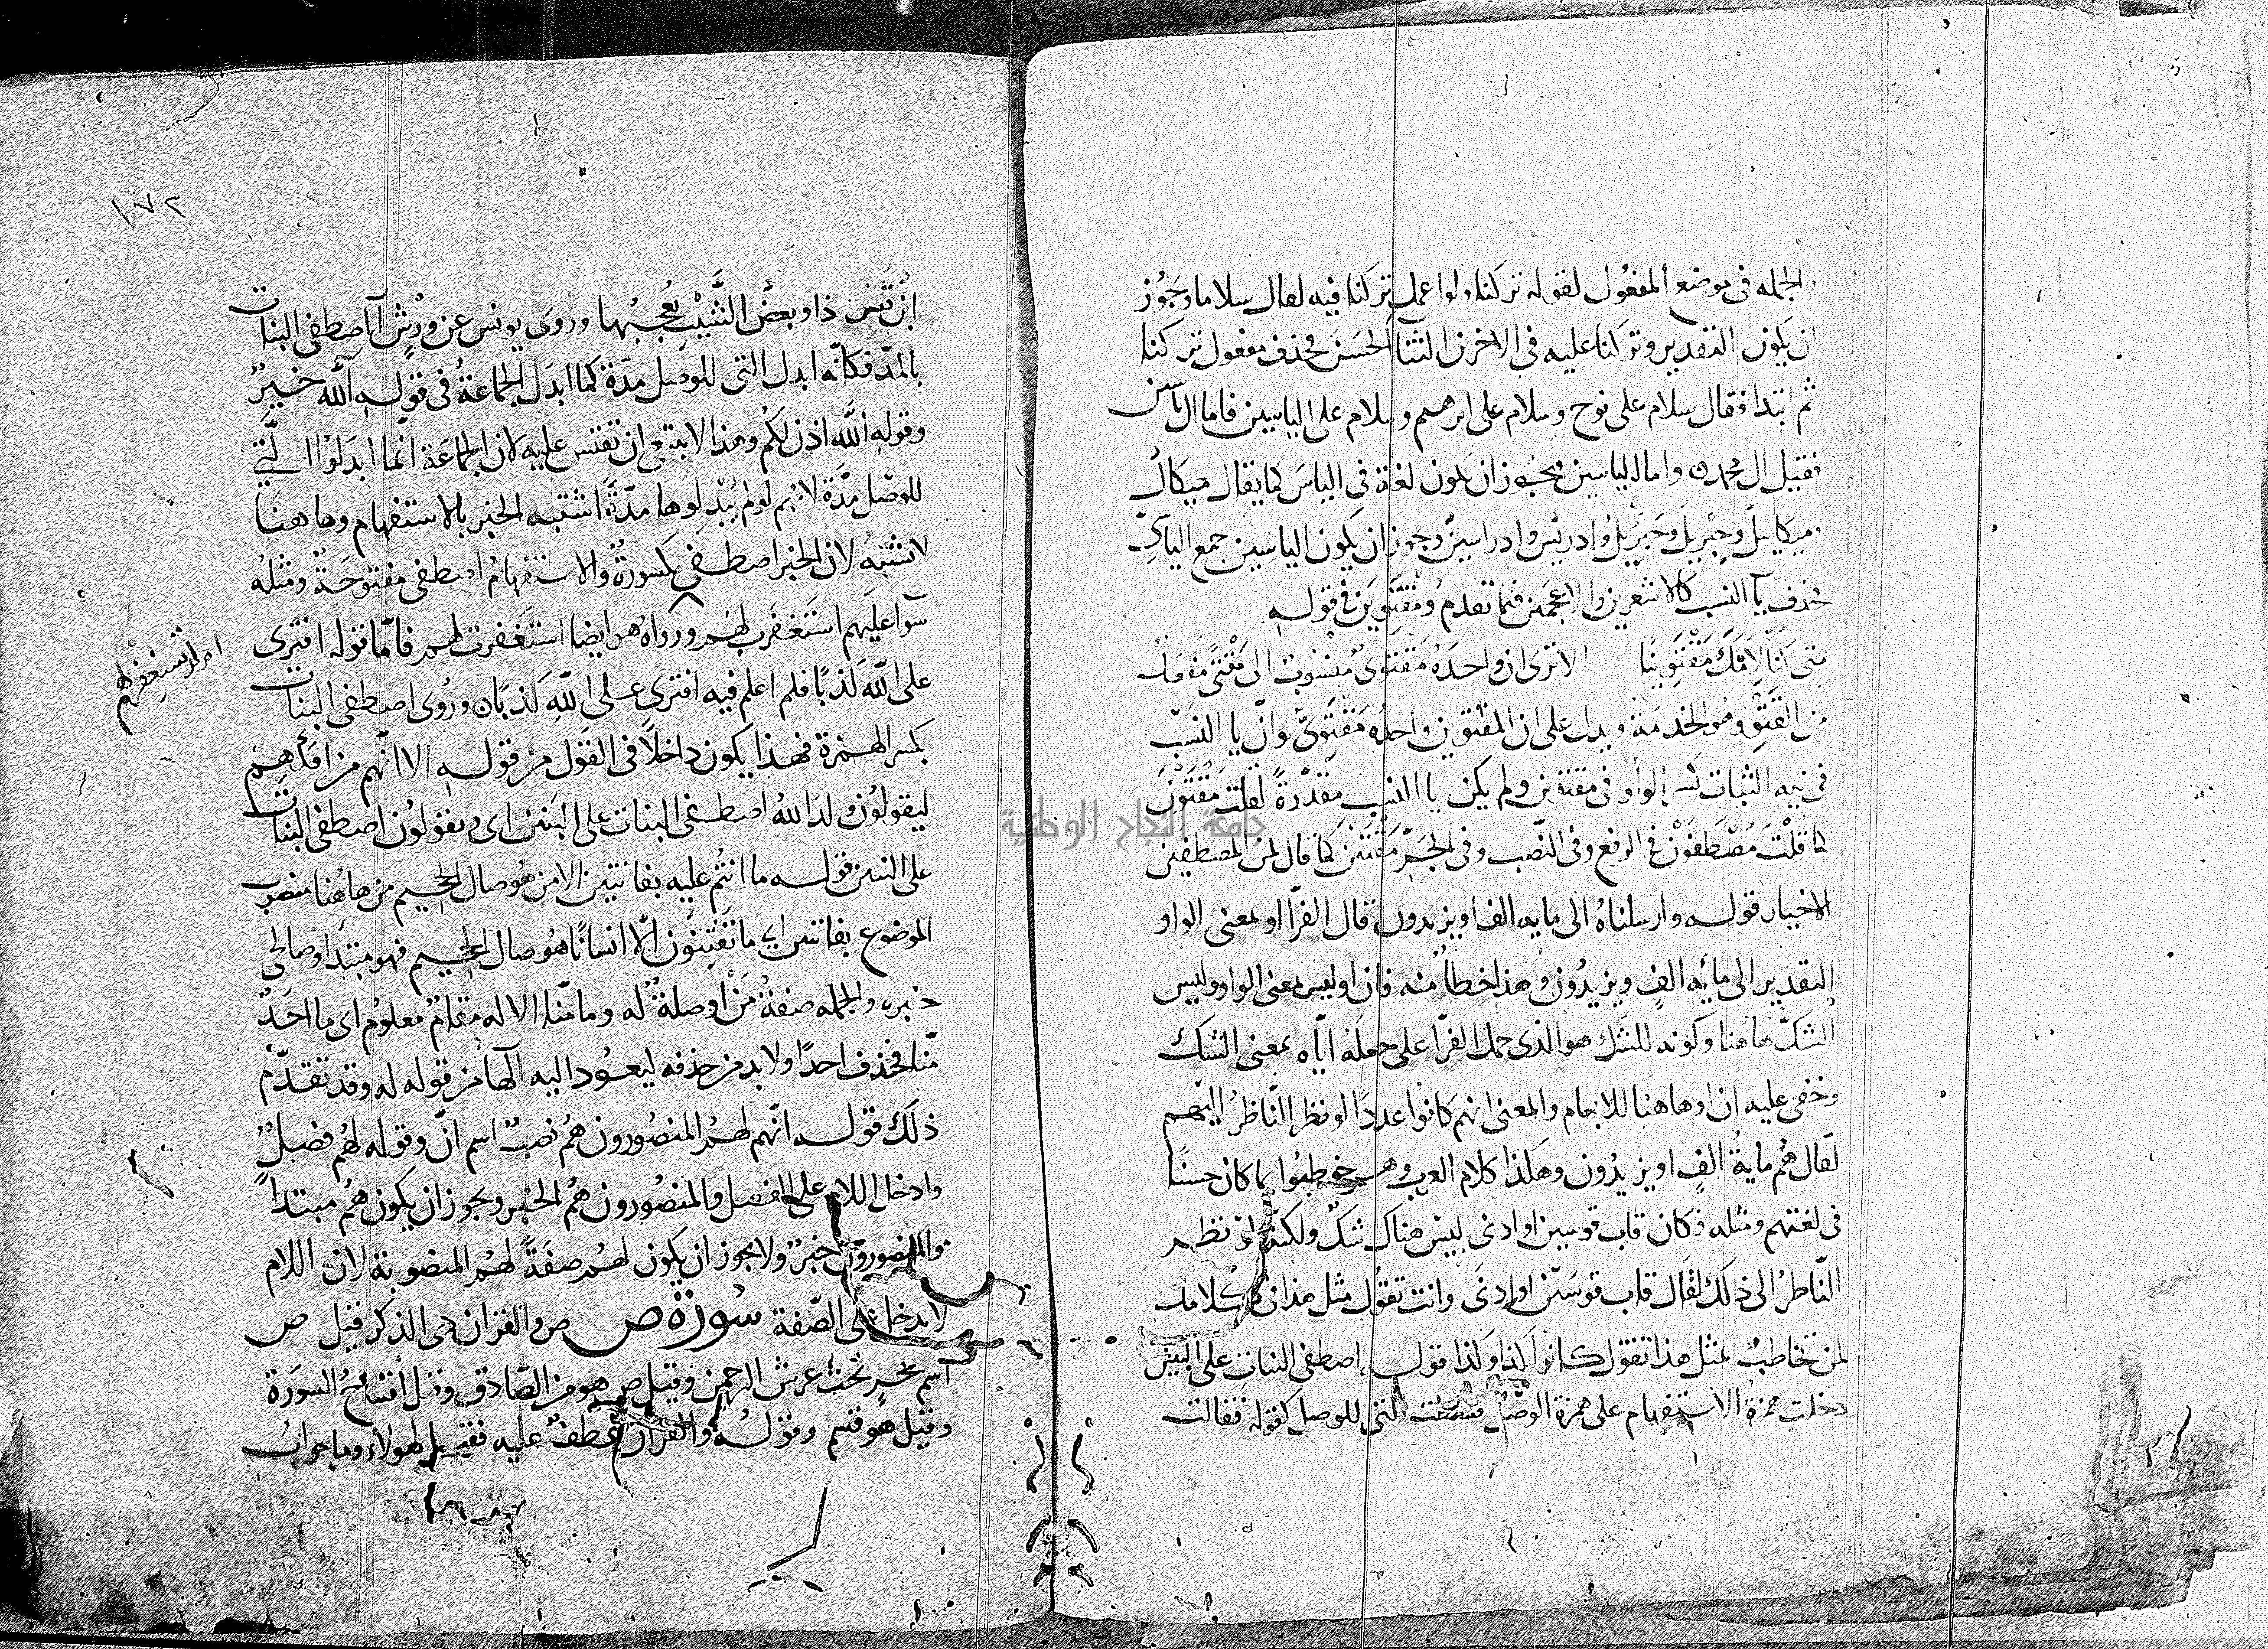 والجمله فى موضع المفعول لقوله تركنا ولو اعمل تركنا فيه لقال سلاما ويجوز
ان يكون التقدير وتركنا عليه فى الاخرين الثنا الحسن فحذف مفعول تركنا
ثم ابتدا فقال سلام على نوح وسلام على ابرهيم وسلام على الياسين فاما ال ياسين
فقيل ال محمد واما الياسين فيجوز ان يكون لغة فى الياس كما يقال ميكال
وميكاييل وجبريل وجبرييل وادريس وادراسين ويجوز ان يكون الياسين جمع الياسى
فحذف يا النسب كالاشعرين والاعجمين فيما تقدم ومقتوين فى قوله
متى كنا لامك مقتوينا الا ترى ان واحده مقتوى منسوب الى مقتى مفعل
من القتو وهو الخدمة ويدل على ان المقتوين واحده مقتوى وان يا النسب
فى نيه الثبات كسر الواو فى مقتوين ولم يكن يا النسب مقدرة لقلت مقتون
كما قلت مصطفون فى الرفع وفى النصب وفى الجر مقتين كما قال لمن المصطفين
الاخيار قوله وارسلناه الى مايه الف او يزيدون قال الفرا او بمعنى الواو
التقدير الى مائه الف ويزيدون وهذا خطا منه فان او ليس بمعنى الواو وليس
الشك هاهنا وكونه للشك هو الذى حمل الفرا على جعله اياه بمعنى الشك
وخفى عليه ان او هاهنا للابهام والمعنى انهم كانوا عددا لو نظر الناظر اليهم
لقال هم ماية الف او يزيدون وهكذا كلام العرب وهم خوطبوا بما كان حسنا
فى لغتهم ومثله فكان قاب قوسين او ادنى ليس هناك شك ولكن لو نظر
الناظر الى ذلك لقال قاب قوسين او ادنى وانت تقول مثل هذا فى كلامك
لمن تخاطب بمثل هذا تقول كانوا كذا وكذا قوله اصطفى البنات على البنين
دخلت همزة الاستفهام على همزة الوصل فسقطت التى للوصل كقوله فقالت
ابن قيس ذا وبعض الشيب يعجبها وروى يونس عن ورش آصطفى البنات
بالمد فكانه ابدل التى للوصل مدة كما ابدل الجماعة فى قوله آلله خير
وقوله آلله اذن لكم وهذا لا ينبغى ان تقيس عليه لان الجماعة انما ابدلوا التى
للوصل مدة لانهم لو لم يبدلوها مدة اشتبه الخبر بالاستفهام وهاهنا
لا تشتبه لان الخبر اصطفى مكسورة والاستفهام اصطفى مفتوحة ومثله
سوآ عليهم استغفرت لهم ورواه هو ايضا آستغفرت لهم فاما قوله افترى
ام لم تستغفر لهم
على الله كذبا فلم اعلم فيه افترى على الله كذبا وروى اصطفى البنات
بكسر الهمزة فهذا يكون داخلا فى القول من قوله الا انهم من افكهم
ليقولون ولد الله اصطفى البنات على البنين اى ويقولون اصطفى البنات
على البنين قوله ما انتم عليه بفاتنين الا من هو صال الجحيم من هاهنا منصوب
الموضوع بفاتنين اى ما تفتنون الا انسانا هو صال الجحيم فهو مبتدا وصالى
خبره والجمله صفة من او صلة له وما منا الا له مقام معلوم اى ما احد
منا فحذف احدا ولا بد من حذفه ليعود اليه الهآ من قوله له وقد تقدم
ذلك قوله انهم لهم المنصورون هم نصب اسم ان وقوله لهم فصل
وادخل اللام على الفصل والمنصورون هم الخبر ويجوز ان يكون هم مبتدا
والمنصورون خبر ولا يجوز ان يكون لهم صفة لهم المنصوبة لان اللام
لا تدخل على الصفة سورة ص ص والقران ذى الذكر قيل ص
اسم بحر تحت عرش الرحمن وقيل ص هو من الصادق وقيل افتتاح السورة
وقيل هو قسم وقوله والقران عطف عليه وما جواب
١٧٢
جامعة النجاح الوطنية